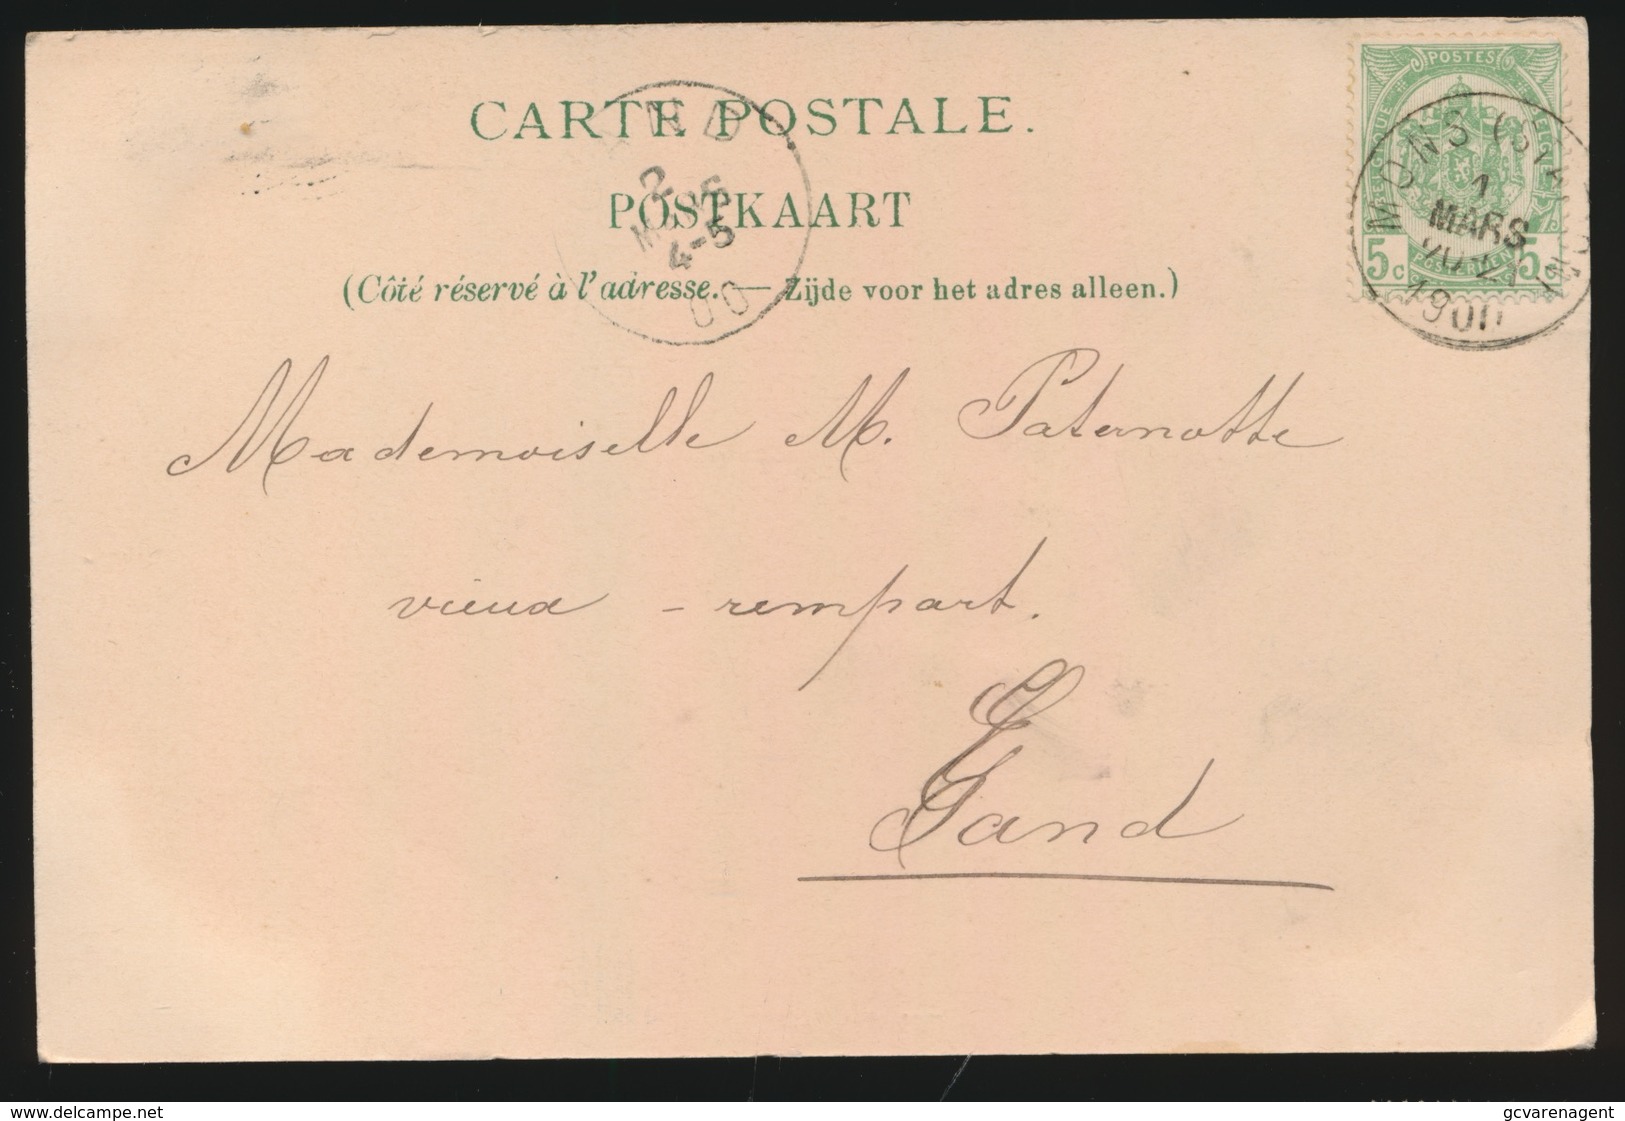 CARTE POSTALE.
POSTKAART
(Côté réservé à l'adresse. — Zijde voor het adres alleen.)
POSTES
BELGIQUE BELGIË
5c POSTERIJEN 5c
MONS
1
MARS
1900
2
4-5
00
Mademoiselle M. Paternotte
vieux - rempart.
Gand
delcampe.net
gcvarenagent